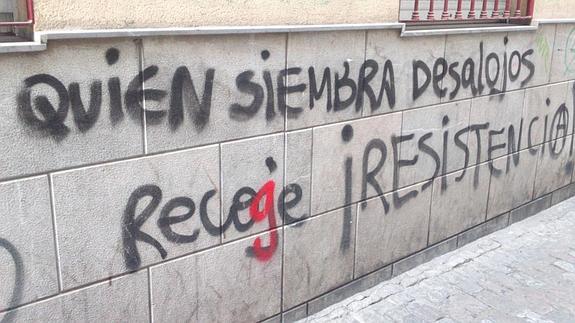 QUIEN SIEMBRA DesALojos
Recoge ¡RESISTENCIA!